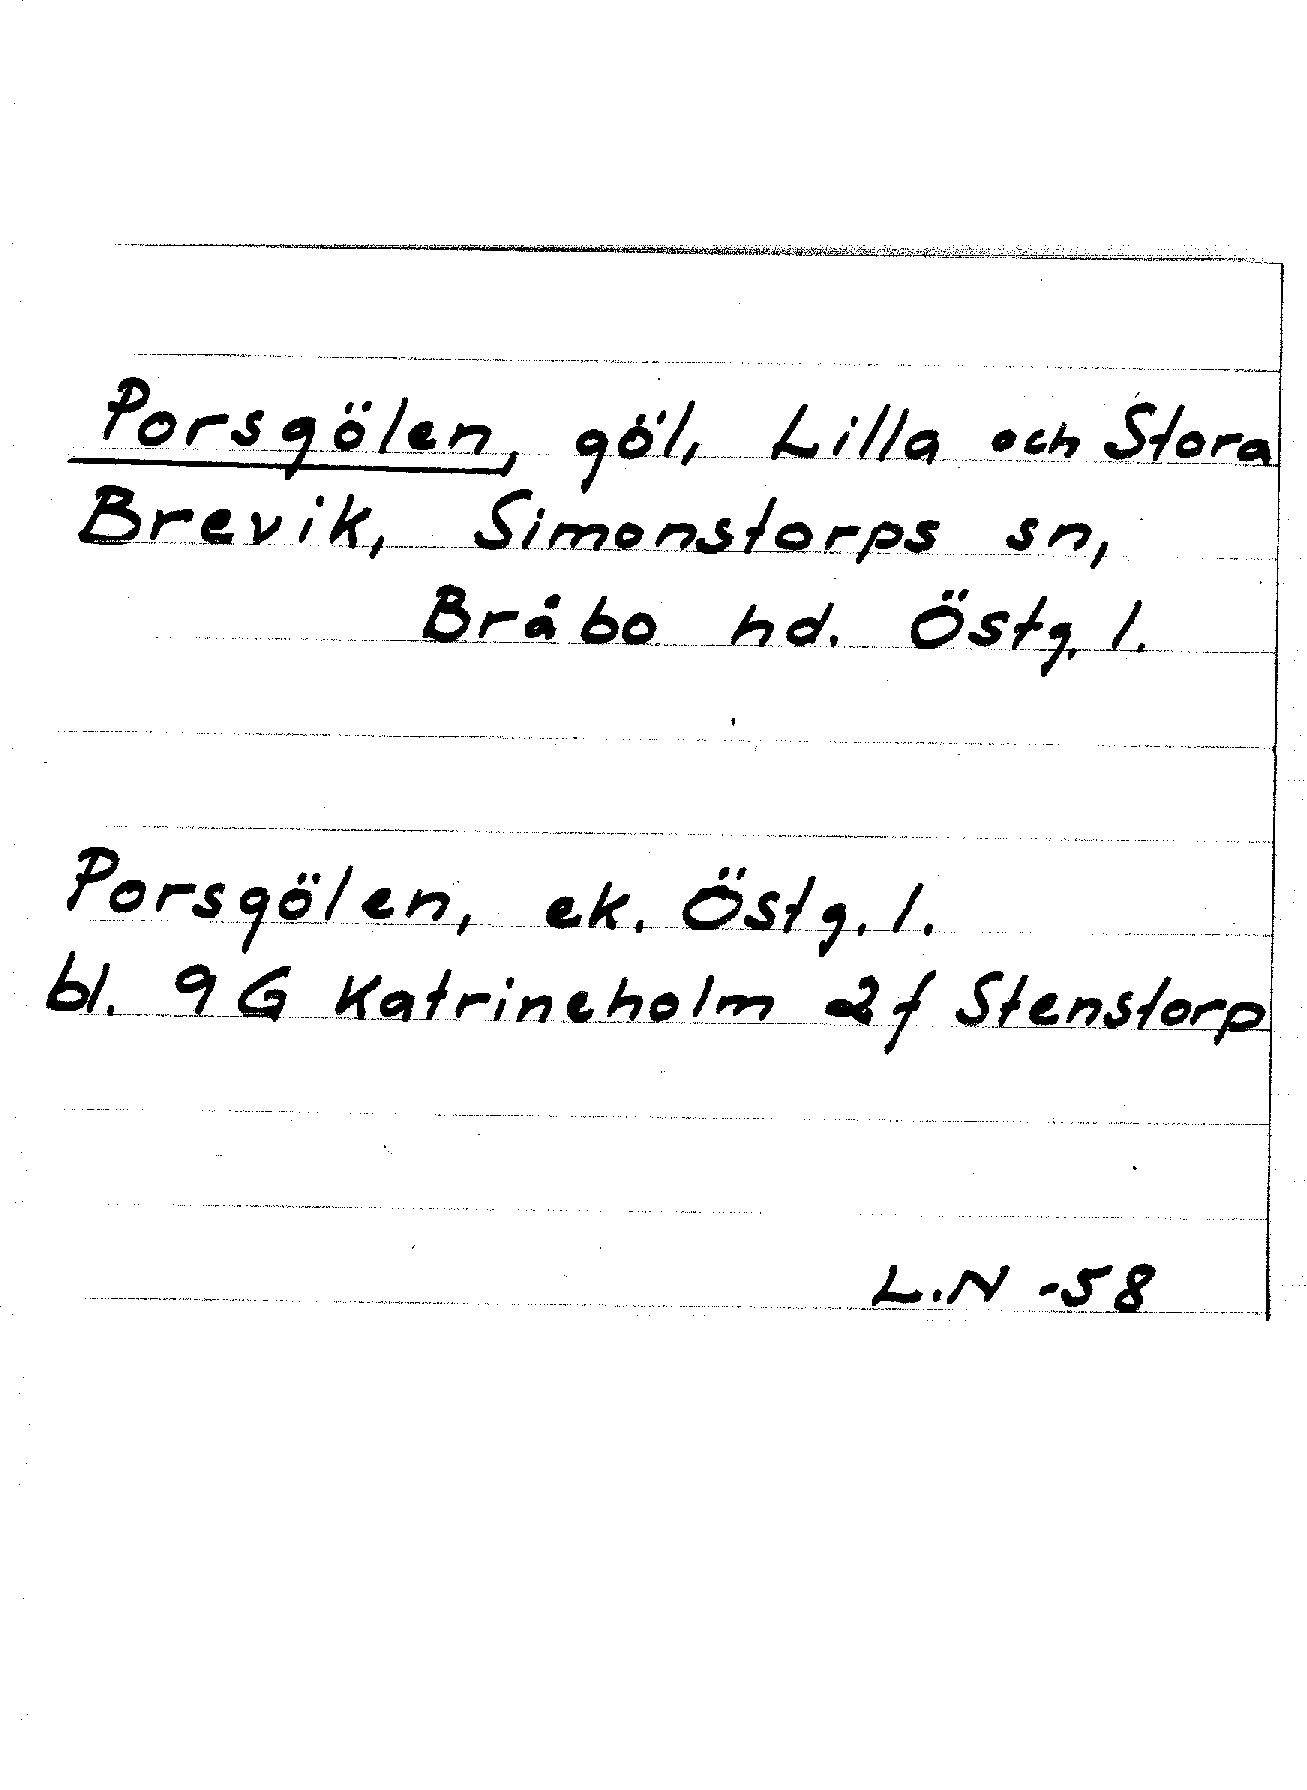 Porsgölen, göl, Lilla och Stora
Brevik, Simonstorps sn,
Bråbo hd. Östg. l.
Porsgölen, ek. Östg. l.
bl. 9 G Katrineholm 2 f Stenstorp
L.N -58